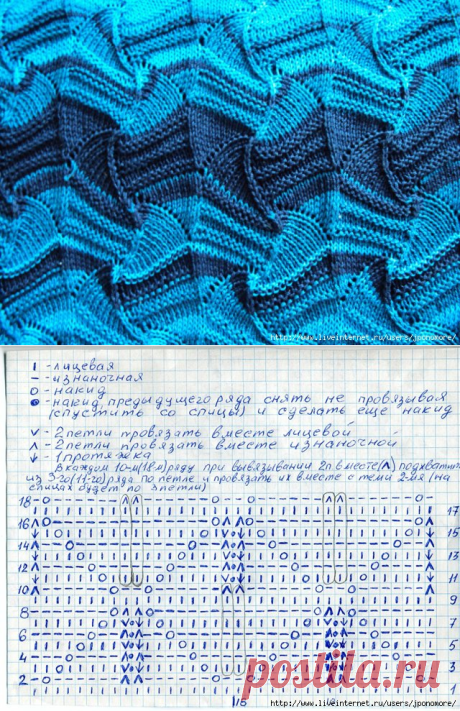 http://www.liveinternet.ru/users/jponomore/
I - лицевая
— - изнаночная
O - накид
● - накид предыдущего ряда снять не провязывая
(спустить со спицы) и сделать еще накид
V - 2 петли провязать вместе лицевой
Λ - 2 петли провязать вместе изнаночной
↓ - 1 протяжка
В каждом 10-м (18-м) ряду при вывязывании 2п. вместе (Λ) подхватить
из 3-го (11-го) ряда по петле и провязать их вместе с теми 2-мя (на
спицах будет по 3 петли)
18
17
16
15
14
13
12
11
10
9
8
7
6
5
4
3
2
1
postila.ru
http://www.liveinternet.ru/users/jponomore/